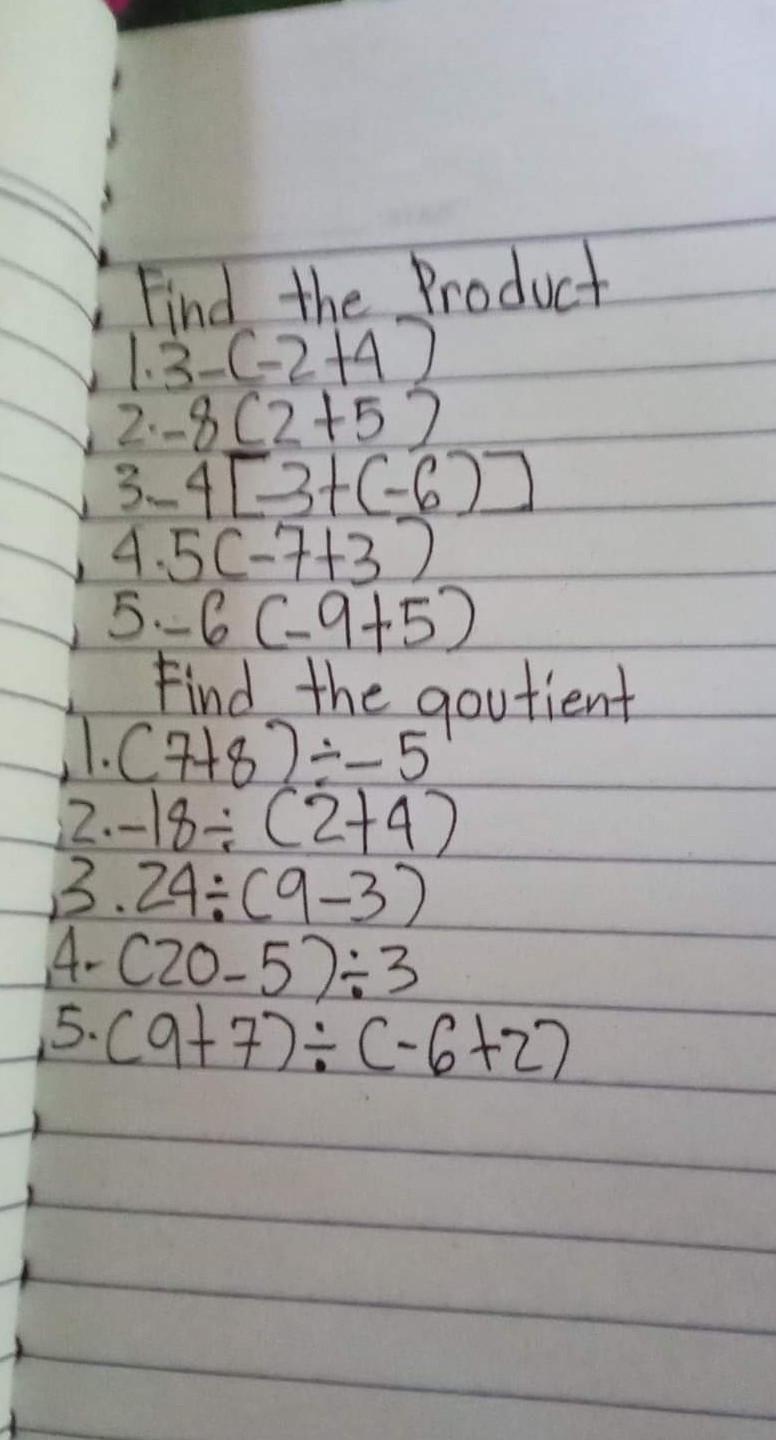 Find the Product
1.3-(-2+4)
2.-8(2+5)
3-4[-3+(-6)]
4.5(-7+3)
5.-6(-9+5)
Find the qoutient
1.(7+8)÷-5
2.-18÷(2+4)
3.24÷(9-3)
4-(20-5)÷3
5.(9+7)÷(-6+2)